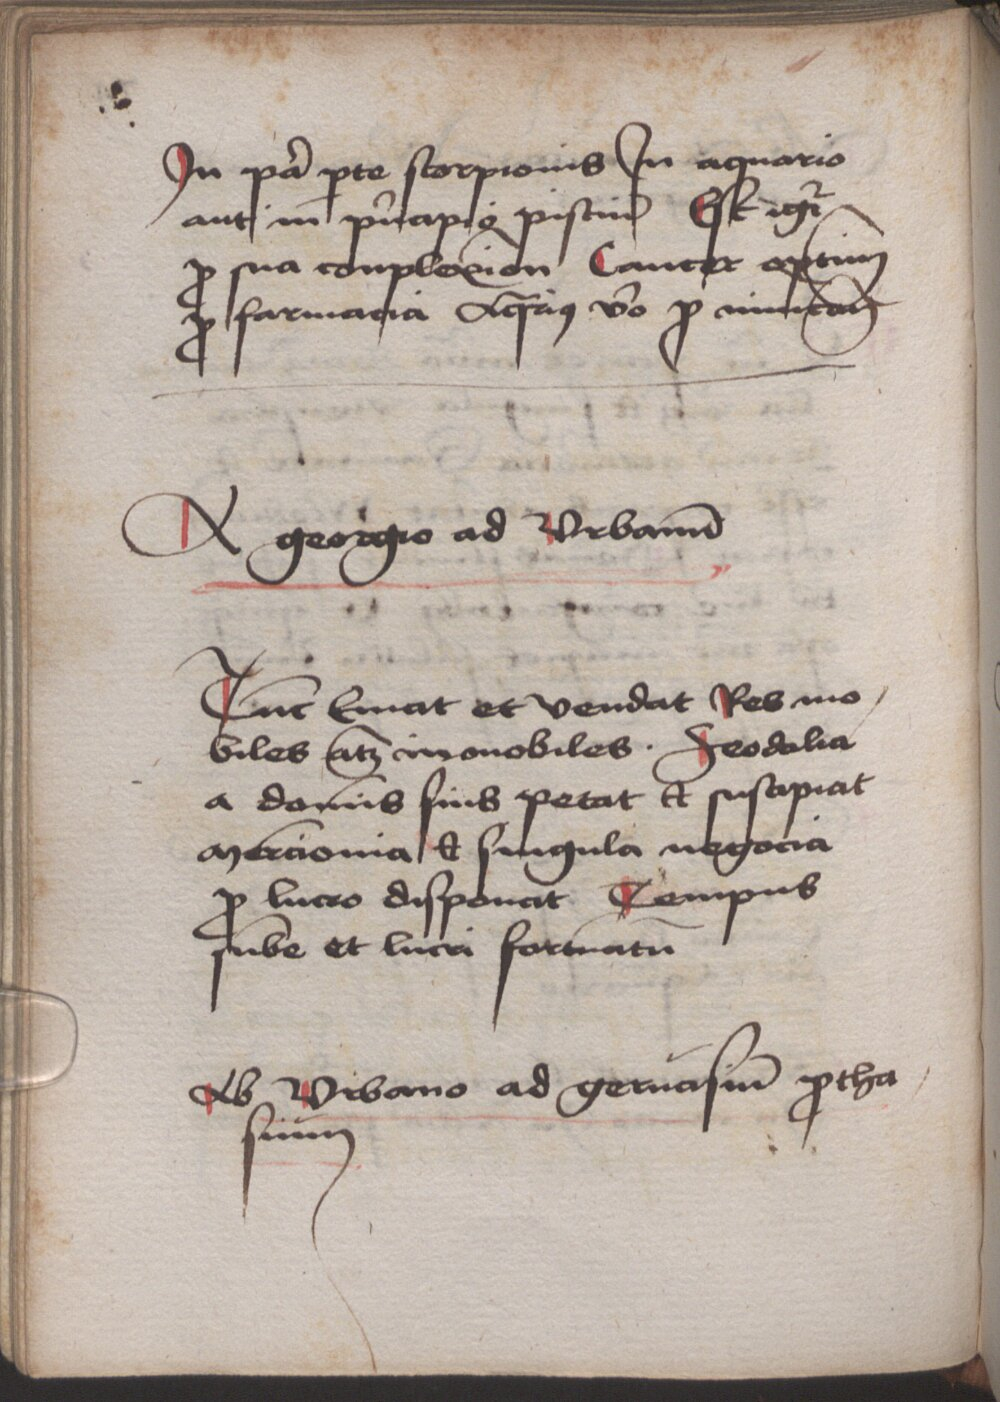 In pa᷑ pte scorpionis In aquario
aut in pͥncipio pisciu᷑ Est igr᷑
ꝓ sua conplexio᷑n Cancer optim᷑
ꝓ farmacia Aq᷑riꝰ vo᷑ ꝓ
A georgio ad Vrbanu᷑
Tuc᷑ Emat et vendat Res mo
biles atꝫ inmobiles · Feodalia
a domi᷑s suis petat et suscipiat
Mercionia et singula negocia
ꝓ lucro disponat Tempus
sube᷑ et lucri fortunatu᷑
Ab Vrbano ad geruasiu᷑ ꝓtha
sium